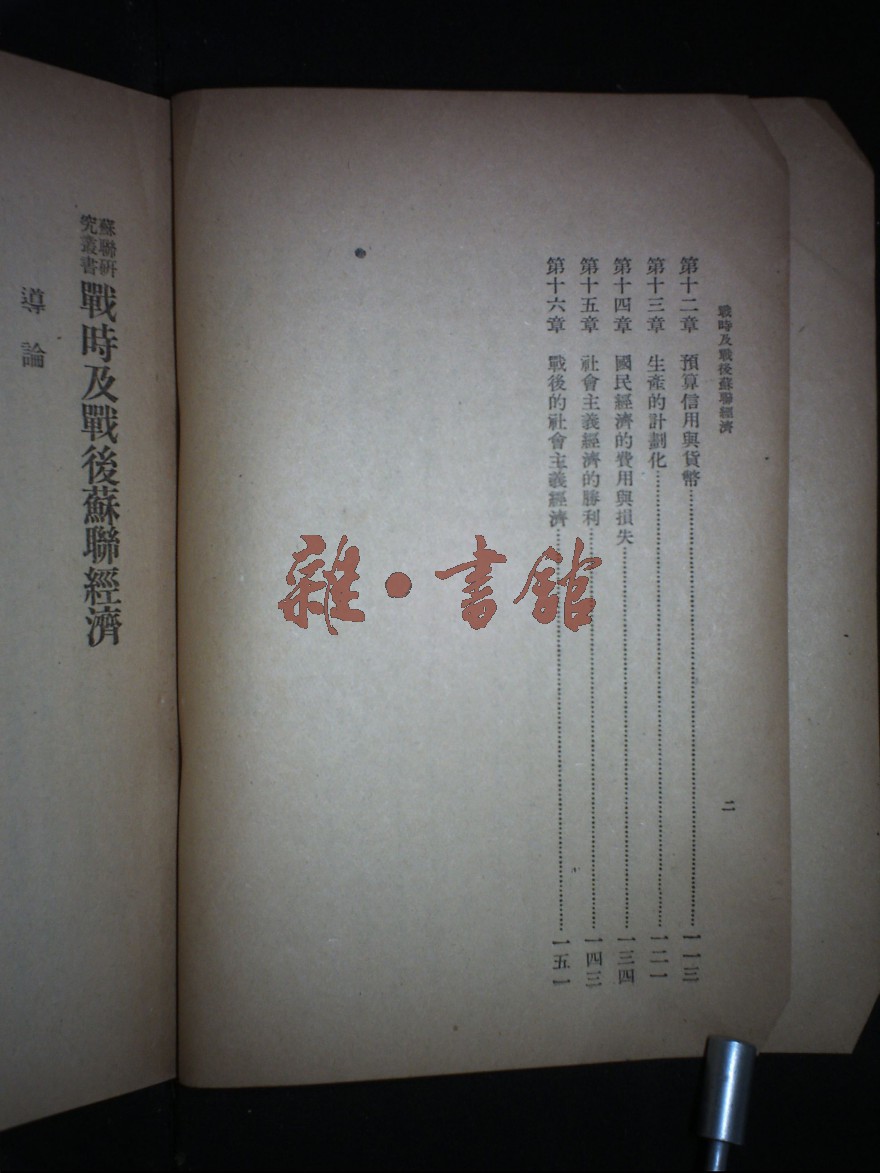 戰時及戰後蘇聯經濟
二
第十二章 預算信用與貨幣……一一三
第十三章 生產的計劃化……一二一
第十四章 國民經濟的費用與損失……一三四
第十五章 社會主義經濟的勝利……一四三
第十六章 戰後的社會主義經濟……一五一
蘇聯研
究叢書
戰時及戰後蘇聯經濟
導論
雜·書館